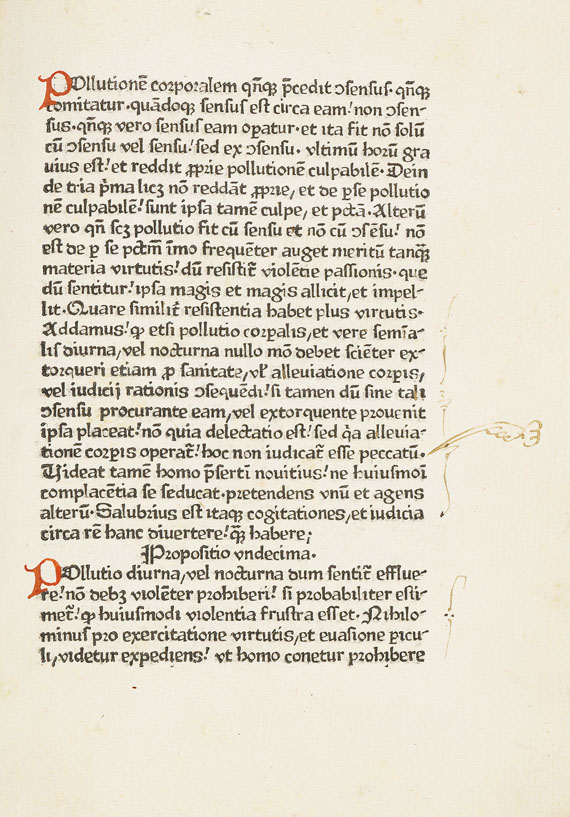 POllutionē corporalem qñqꝫ p̄cedit ↄsensus· qñqꝫ
comitatur· quādoqꝫ sensus est circa eam! non ↄsen-
sus· qñqꝫ vero sensus eam oꝑatur· et ita fit nō solū
cū ↄsensu vel sensu! sed ex ↄsensu· vltimū horū gra
uius est! et reddit ꝓprie pollutionē culpabilē· Dein
de tria p̄ma licꝫ nō reddāt ꝓprie, et de ꝑse pollutio
nē culpabilē! sunt ipsa tamē culpe, et pctā· Alterū
vero qñ scꝫ pollutio fit cū sensu et nō cū ↄsēsu! nō
est de ꝑ se pctm̄ īmo frequēter auget meritū tanqꝫ̄
materia virtutis! dū resistit̄ violētie passionis· que
dū sentitur! ipsa magis et magis allicit, et impel-
lit· Quare similit̄ resistentia habet plus virtutis·
Addamus! ꝙ etsi pollutio corꝑalis, et vere semīa-
lis diurna, vel nocturna nullo mō debet sciēter ex-
torqueri etiam ꝓ sanitate, vl̓ alleuiatione corꝑis,
vel iudicij rationis ↄsequēdi! si tamen dū sine tali
ↄsensu procurante eam, vel extorquente prouenit
ipsa placeat! nō quia delectatio est! sed q̓a alleuia-
tionē corꝑis operat̄! hoc non iudicat̄ esse peccatū·
Uideat tamē homo p̄serti nouitius! ne huiusmoi
complacētia se seducat· pretendens vnū et agens
alterū· Salubrius est itaqꝫ cogitationes, et iudicia
circa rē hanc diuertere! qꝫ̄ habere;
Propositio vndecima·
POllutio diurna, vel nocturna dum sentit̄ efflue-
re! nō debꝫ violēter prohiberi! si probabiliter esti-
met̄! ꝙ huiusmodi violentia frustra esset· Nihilo-
minus pro exercitatione virtutis, et euasione ꝑicu-
li, videtur expediens! vt homo conetur prohibere